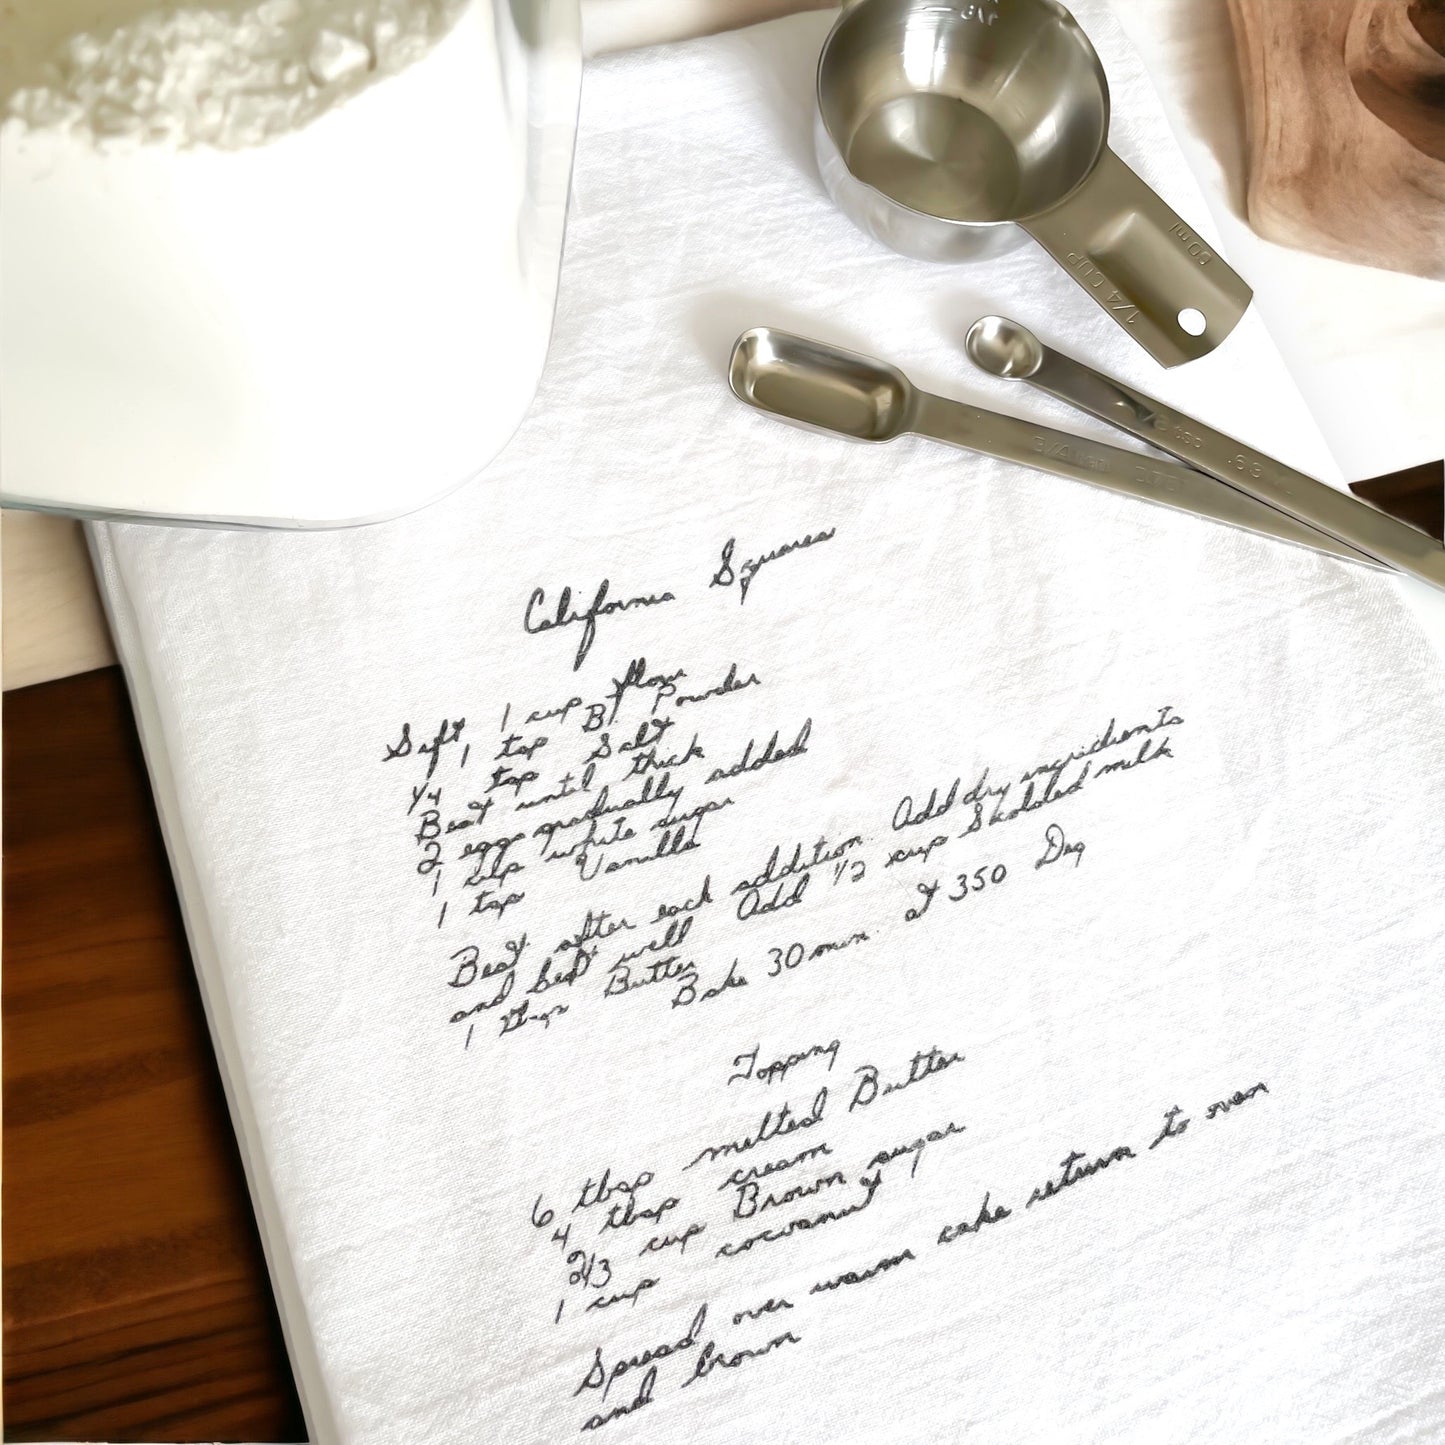 1/4 CUP
60 ml
California Squares
Sift 1 cup flour
1 tsp B. Powder
1/4 tsp Salt
Beat until thick
2 eggs gradually added
1 cup white sugar
1 tsp Vanilla
Beat after each addition. Add dry ingredients
and beat well Add 1/2 cup Scalded milk
1 tbsp Butter
Bake 30 min. at 350 Deg
Topping
6 tbsp melted Butter
4 tbsp cream
2/3 cup Brown sugar
1 cup cocoanut
Spread over warm cake return to oven
and brown